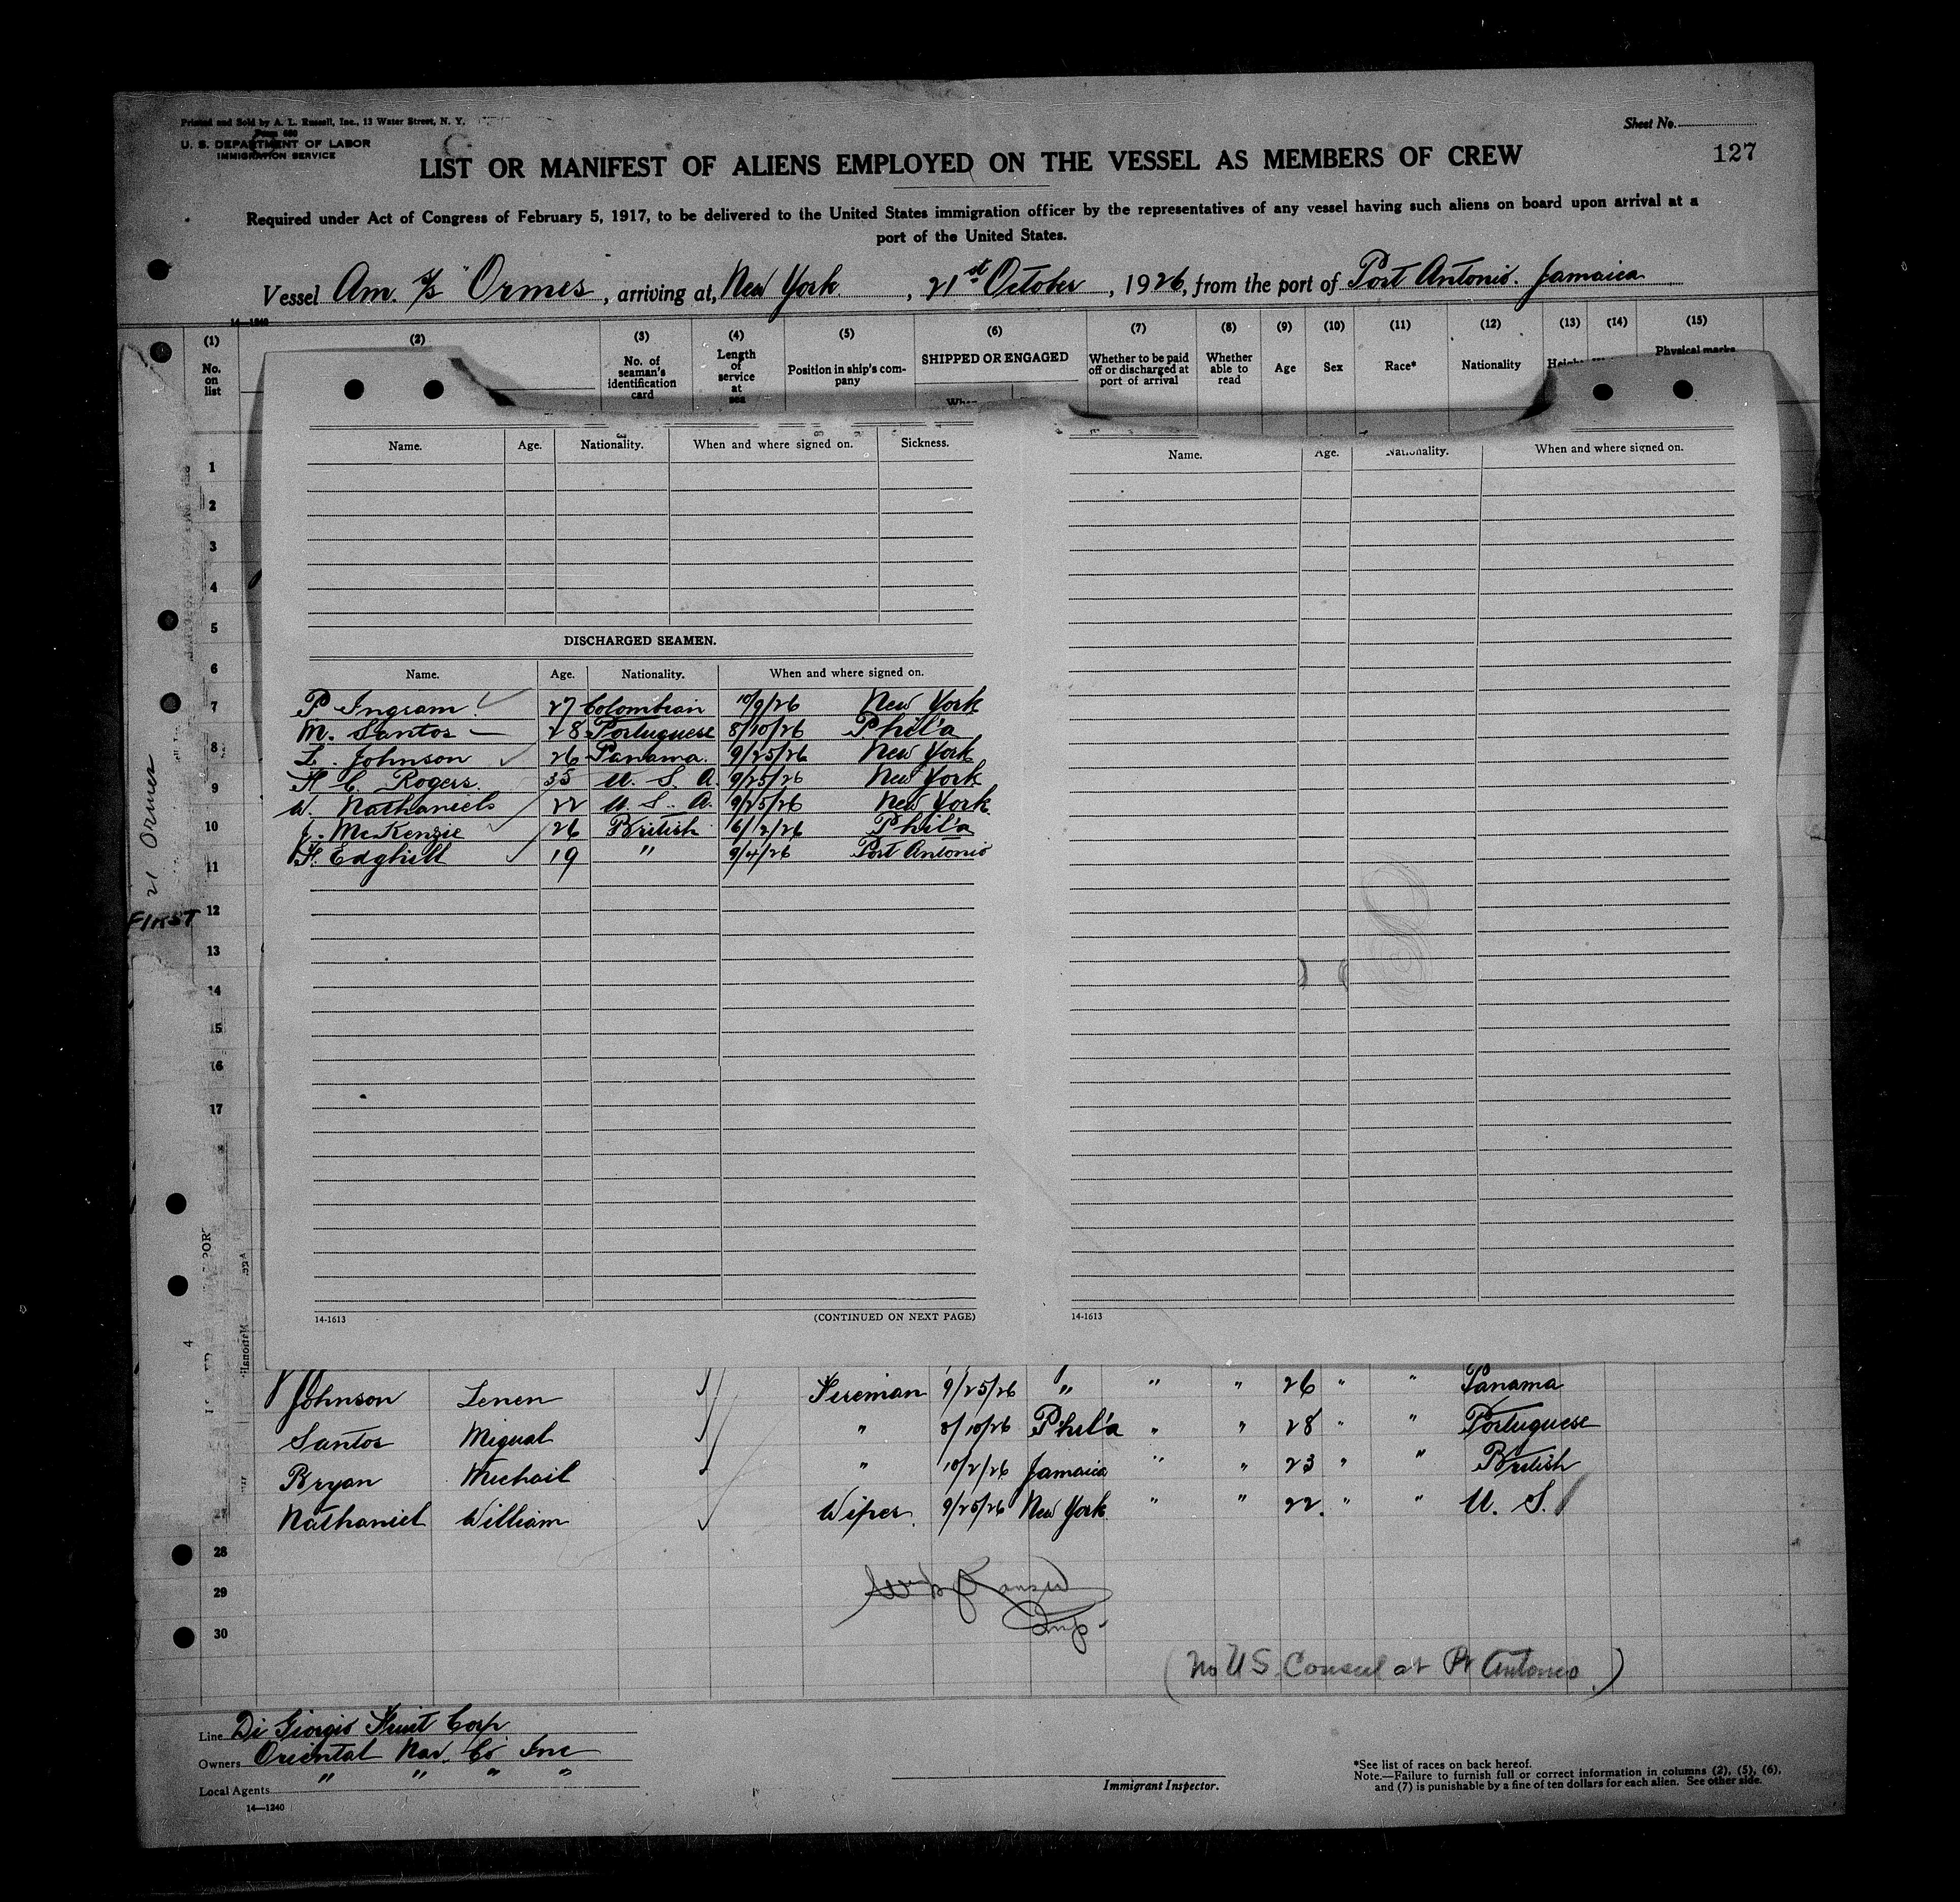 Printed and Sold by A. L. Russell, Inc., 13 Water Street, N. Y.
Form 680
U. S. DEPARTMENT OF LABOR
IMMIGRATION SERVICE
Sheet No.
127
LIST OR MANIFEST OF ALIENS EMPLOYED ON THE VESSEL AS MEMBERS OF CREW
Required under Act of Congress of February 5, 1917, to be delivered to the United States immigration officer by the representatives of any vessel having such aliens on board upon arrival at a
port of the United States.
Vessel Am. S/S "Ormes, arriving at, New York, 21st October, 1926, from the port of Port Antonio. Jamaica
14—1240
(1) (2) (3) (4) (5) (6) (7) (8) (9) (10) (11) (12) (13) (14) (15)
No. on list
No. of seaman's identification card
Length of service at sea
Position in ship's company
SHIPPED OR ENGAGED
Whether to be paid off or discharged at port of arrival
Whether able to read
Age
Sex
Race*
Nationality
Height
Physical marks
Name. Age. Nationality. When and where signed on. Sickness.
Name. Age. Nationality. When and where signed on.
1
2
3
4
5
DISCHARGED SEAMEN.
6
Name. Age. Nationality. When and where signed on.
P Ingram 27 Colombian 10/9/26 New York
7
M. Santos 28 Portuguese 8/10/26 Phil'a
8
L. Johnson 26 Panama. 9/25/26 New York
H C Rogers. 35 U. S. A. 9/25/26 New York
9
W. Nathaniels 22 U. S. A. 9/25/26 New York
10
J. McKenzie 26 British 6/2/26 Phil'a
F. Edghill 19 " 9/4/26 Port Antonio
11
21 Ormes
FIRST
12
13
14
15
16
17
4
14-1613 (CONTINUED ON NEXT PAGE) 14-1613
Johnson Lenen Fireman 9/25/26 " " " 26 " " Panama
Santos Migual " 8/10/26 Phil'a " " 28 " " Portuguese
Bryan Michail " 10/2/26 Jamaica " " 23 " " British
27 Nathaniel William Wiper. 9/25/26 New York " " 22. " " U. S.
28
29
30
Insp.
(No U S. Consul at Pt Antonio.)
Line Di Giorgio Fruit Corp
Owners Oriental Nav. Co Inc
Local Agents " " " "
14—1240
Immigrant Inspector.
*See list of races on back hereof.
Note.—Failure to furnish full or correct information in columns (2), (5), (6),
and (7) is punishable by a fine of ten dollars for each alien. See other side.